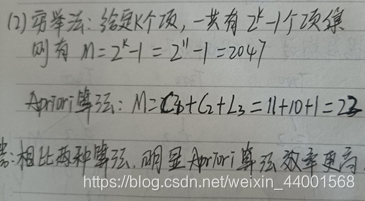 (2) 穷举法: 给定K个项,一共有 2^k-1个项集
则有 M=2^k-1=2^11-1=2047
Apriori算法: M=C1+C2+L3=11+10+1=22
相比两种算法,明显Apriori算法效率更高.
https://blog.csdn.net/weixin_44001568